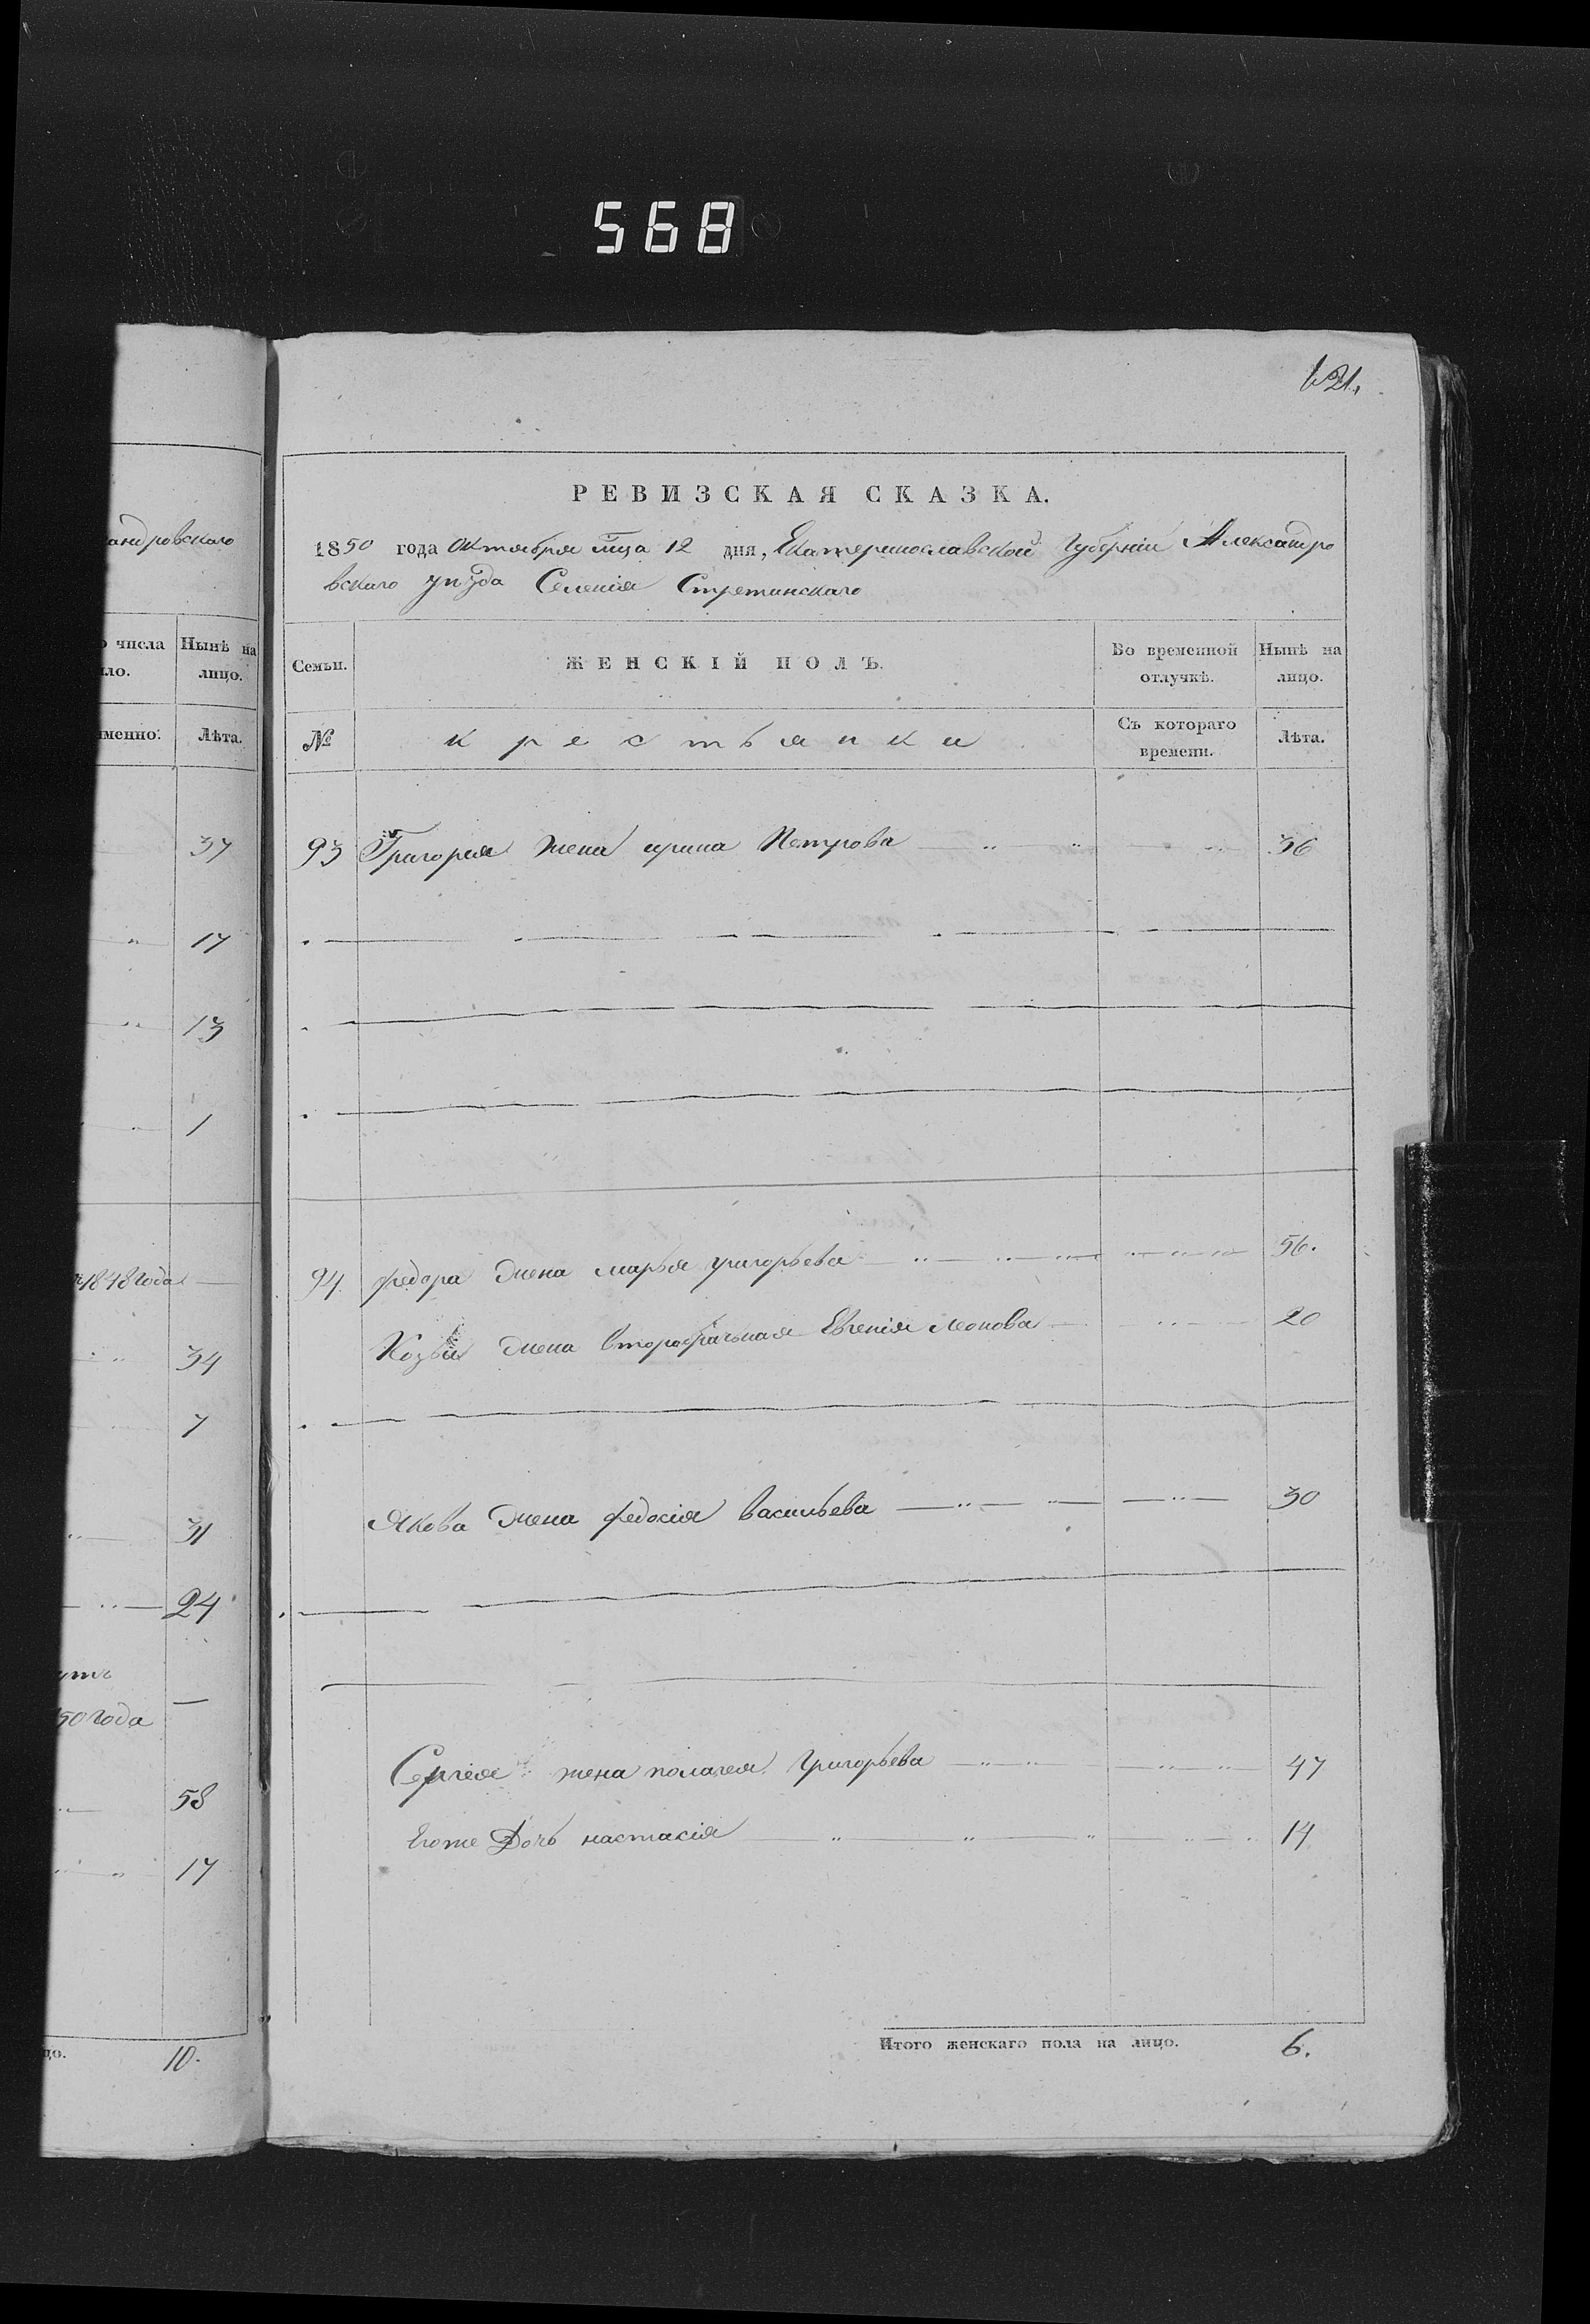 568
621.
андровскаго
числа
Нынѣ на
ло.
лицо.
именно:
Лѣта.
37
17
13
1
1848 года
34
7
31
24
50 года
58
17
10.
РЕВИЗСКАЯ СКАЗКА.
1850 года Октября мца 12 дня, Екатеринославской Губерніи Александро
вскаго уѣзда Селенія Стретинскаго
Семьи.
ЖЕНСКІЙ ПОЛЪ.
Во временной отлучкѣ.
Нынѣ на лицо.
№
крестьянки
Съ котораго времени.
Лѣта.
93 Григорія жена ирина Петрова 36
94 федора жена марья григорьева 56.
Козьмы жена второбрачьная Евгенія леонова 20
Якова жена федосія васильева 30
Сергея жена полагея Григорьева 47
Егоже Дочь настасія 14
Итого женскаго пола на лицо. 6.